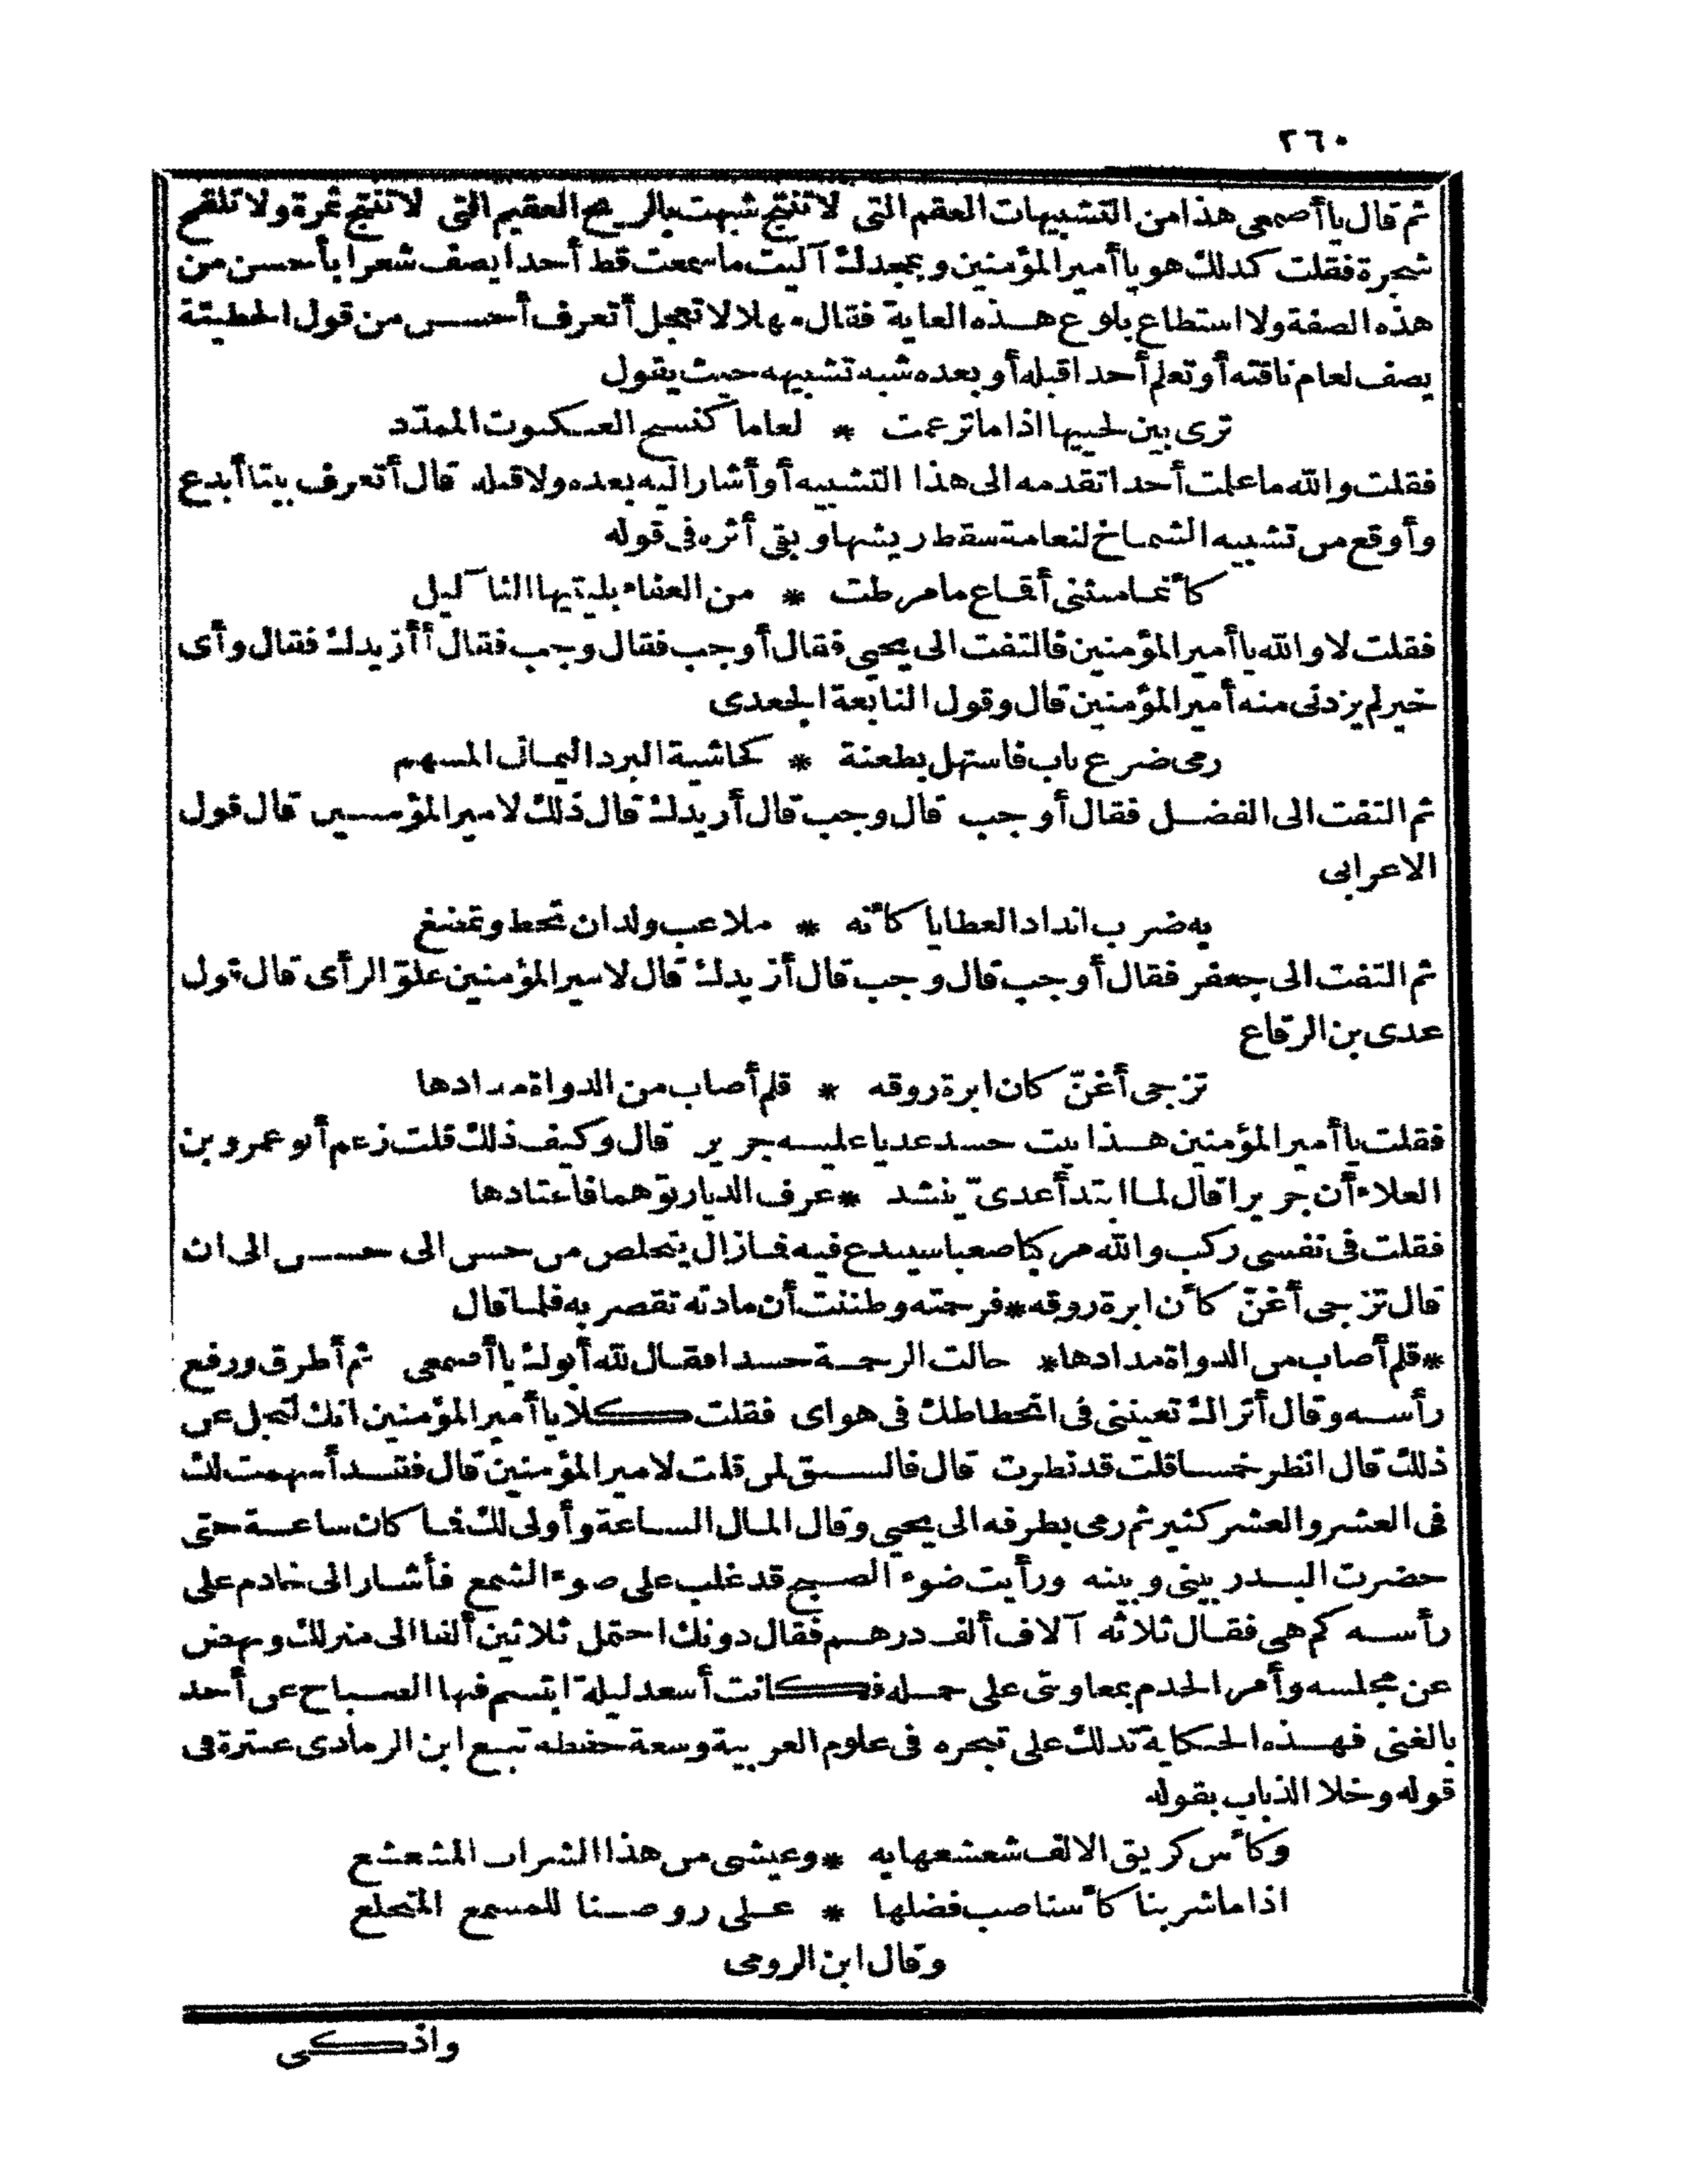 ٢٦٠
ثم قال يا أصمعى هذا من التشبيهات العقم التى لا تنتج شبهت بالريح العقيم التى لا تنتج ثمرة ولا تلقح
شجرة فقلت كذلك هو يا أمير المؤمنين وبمجدك آليت ما سمعت قط أحدا يصف شعرا بأحسن من
هذه الصفة ولا استطاع بلوغ هذه الغاية فقال مهلا لا تعجل أتعرف أحسن من قول الحطيئة
يصف لغام ناقته أو تعلم أحدا قبله أو بعده شبه تشبيهه حيث يقول
ترى بين لحييها اذا ما ترغمت * لغاما كنسج العنكبوت الممدّد
فقلت والله ما علمت أحدا تقدمه الى هذا التشبيه أو أشار اليه بعده ولا قبله قال أتعرف بيتا أبدع
وأوقع من تشبيه الشماخ لنعامة سقط ريشها وبقى أثره فى قوله
كأنما منثنى أقماع ما مرطت * من العفاء بليتيها الثآ ليل
فقلت لا والله يا أمير المؤمنين فالتفت الى يحيى فقال أوجب فقال وجب فقال أأزيدك فقال وأى
خير لم يزدنى منه أمير المؤمنين قال وقول النابغة الجعدى
رمى ضرع ناب فاستهل بطعنة * كحاشية البرد اليمانى المسهم
ثم التفت الى الفضل فقال أوجب قال وجب قال أزيدك قال ذلك لامير المؤمنين قال قول
الاعرابى
به ضرب انداد العطايا كأنه * ملاعب ولدان تحط وتمضغ
ثم التفت الى جعفر فقال أوجب قال وجب قال أزيدك قال لامير المؤمنين علوّ الرأى قال قول
عدى بن الرقاع
تزجى أغنّ كان ابرة روقه * قلم أصاب من الدواة مدادها
فقلت يا أمير المؤمنين هذا بيت حسد عديا عليه جرير قال وكيف ذلك قلت زعم أبو عمرو بن
العلاء أن جريرا قال لما ابتدأ عدىّ ينشد * عرف الديار توهما فاعتادها
فقلت فى نفسى ركب والله مركبا صعبا سيبدع فيه فما زال يتخلص من حسن الى حسن الى ان
قال تزجى أغنّ كأن ابرة روقه * فرحمته وظننت أن مادته تقصر به فلما قال
* قلم أصاب من الدواة مدادها * حالت الرحمة حسدا فقال لله أبوك يا أصمعى ثم أطرق ورفع
رأسه وقال أتراك تعيننى فى انحطاطك فى هواى فقلت كلا يا أمير المؤمنين انك لتجل عن
ذلك قال انظر خمسا قلت قد نظرت قال فالسبق لمن قلت لامير المؤمنين قال فقد أسهمت لك
فى العشر والعشر كثير ثم رمى بطرفه الى يحيى وقال المال الساعة وأولى لك فما كان ساعة حتى
حضرت البدر بينى وبينه ورأيت ضوء الصبح قد غلب على ضوء الشمع فأشار الى خادم على
رأسه كم هى فقال ثلاثة آلاف ألف درهم فقال دونك احتمل ثلاثين ألفا الى منزلك ونهض
عن مجلسه وأمر الخدم بمعاونتى على حمله فكانت أسعد ليلة ابتسم فيها الصباح عن أحد
بالغنى فهذه الحكاية تدلك على تبحره فى علوم العربية وسعة حفظه تبع ابن الرمادى عنترة فى
قوله وخلا الذباب بقوله
وكأس كريق الالف شعشعها به * وعيشى من هذا الشراب المشعشع
اذا ما شربنا كأسنا صب فضلها * على روضنا للمسمع المتخلع
وقال ابن الرومى
واذكى